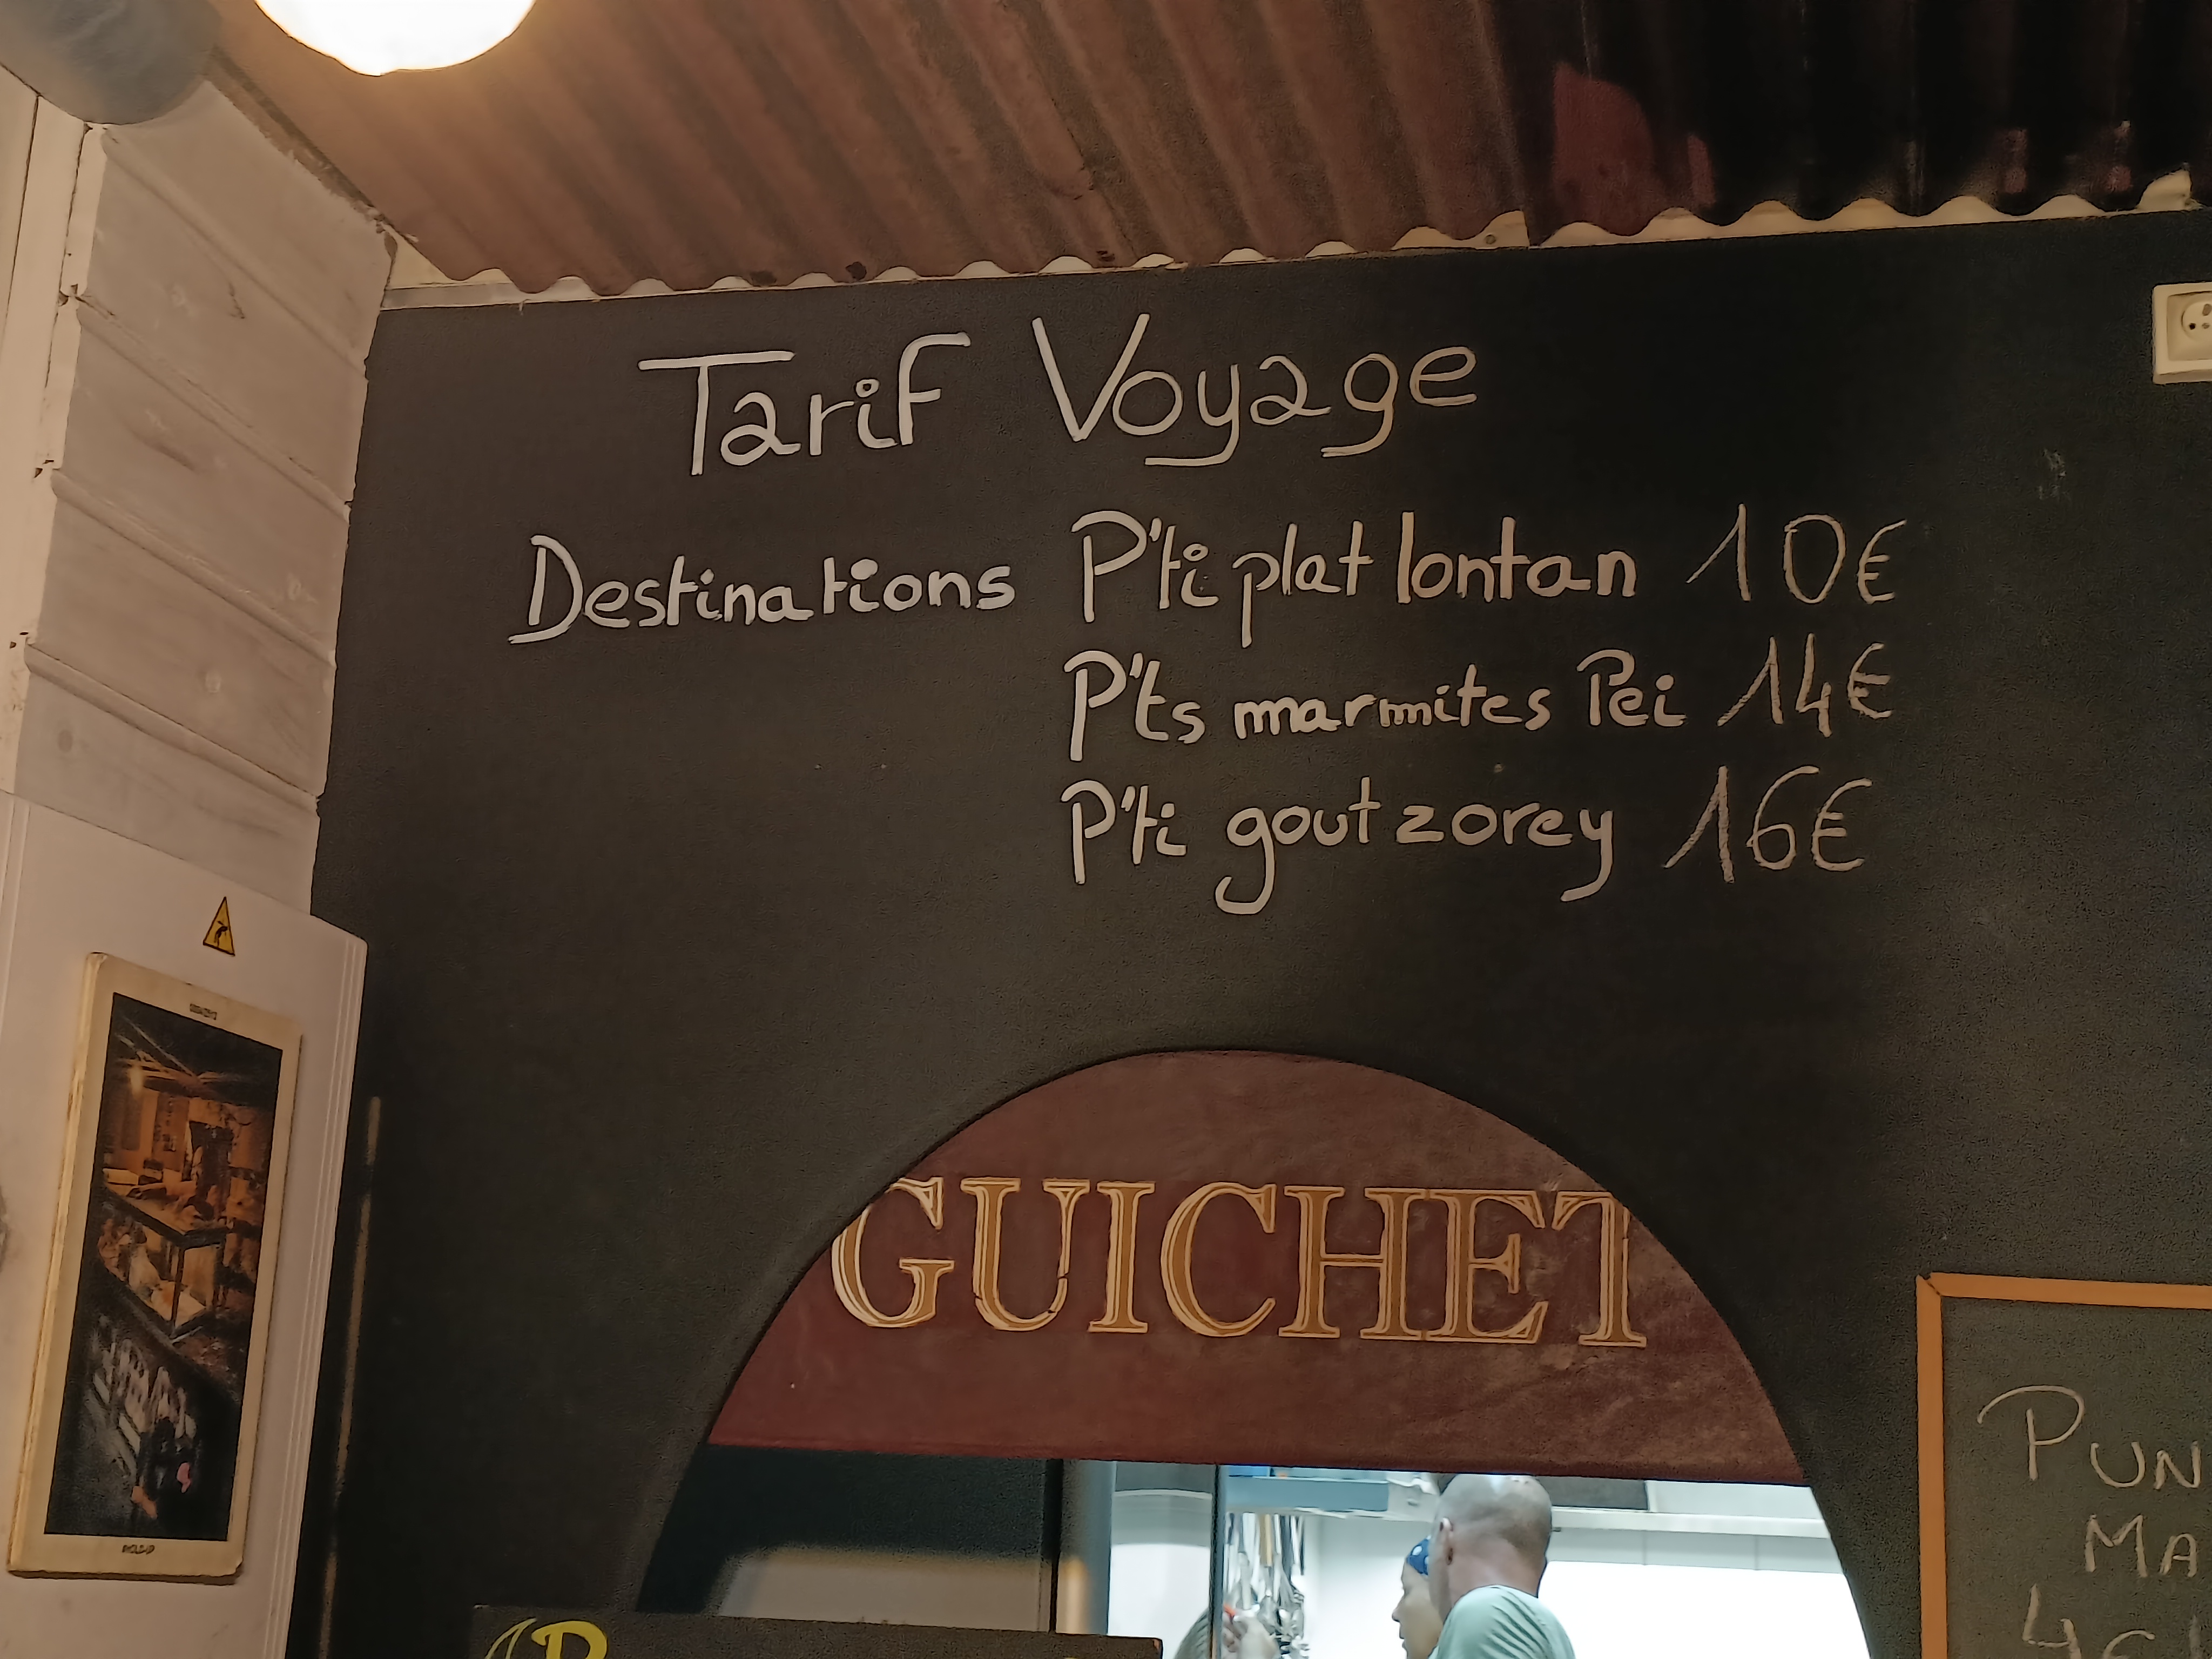 Tarif Voyage
Destinations P'ti plat lontan 10€
P'ts marmites Pei 14€
P'ti gout zorey 16€
GUICHET
PUN
MA